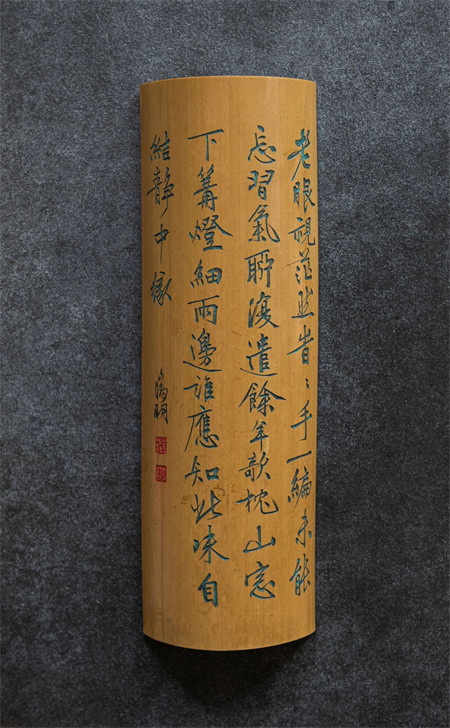 老眼視茫然昔〻手一編未能
忘習氣聊復遣餘年欹枕山窓
下篝燈細雨邊誰應知此味自
結靜中緣